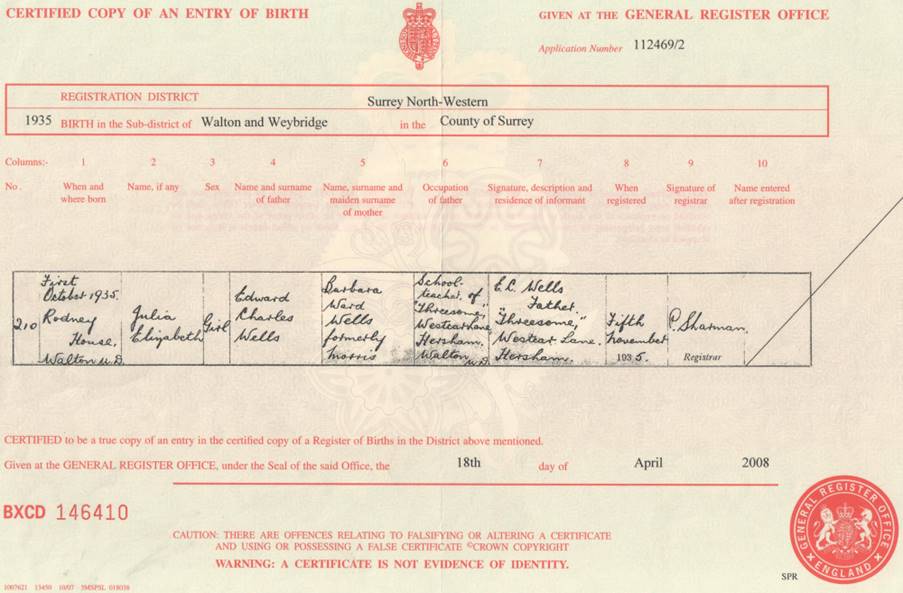 CERTIFIED COPY OF AN ENTRY OF BIRTH
GIVEN AT THE GENERAL REGISTER OFFICE
Application Number 112469/2
REGISTRATION DISTRICT Surrey North-Western
1935 BIRTH in the Sub-district of Walton and Weybridge in the County of Surrey
Columns:- 1 2 3 4 5 6 7 8 9 10
No. When and where born
Name, if any
Sex
Name and surname of father
Name, surname and maiden surname of mother
Occupation of father
Signature, description and residence of informant
When registered
Signature of registrar
Name entered after registration
210
First
October 1935.
Rodney
House,
Walton U.D.
Julia
Elizabeth
Girl
Edward
Charles
Wells
Barbara
Ward
Wells
formerly
Morris
School-
teacher. of
"Threesome,"
Hersham.
Walton U.D.
E.C. Wells
Father.
"Threesome,"
Westcar Lane.
Hersham.
Fifth
November
1935.
P. Sharman.
Registrar
CERTIFIED to be a true copy of an entry in the certified copy of a Register of Births in the District above mentioned.
Given at the GENERAL REGISTER OFFICE, under the Seal of the said Office, the 18th day of April 2008
BXCD 146410
CAUTION: THERE ARE OFFENCES RELATING TO FALSIFYING OR ALTERING A CERTIFICATE
AND USING OR POSSESSING A FALSE CERTIFICATE ©CROWN COPYRIGHT
WARNING: A CERTIFICATE IS NOT EVIDENCE OF IDENTITY.
GENERAL REGISTER OFFICE
ENGLAND
SPR